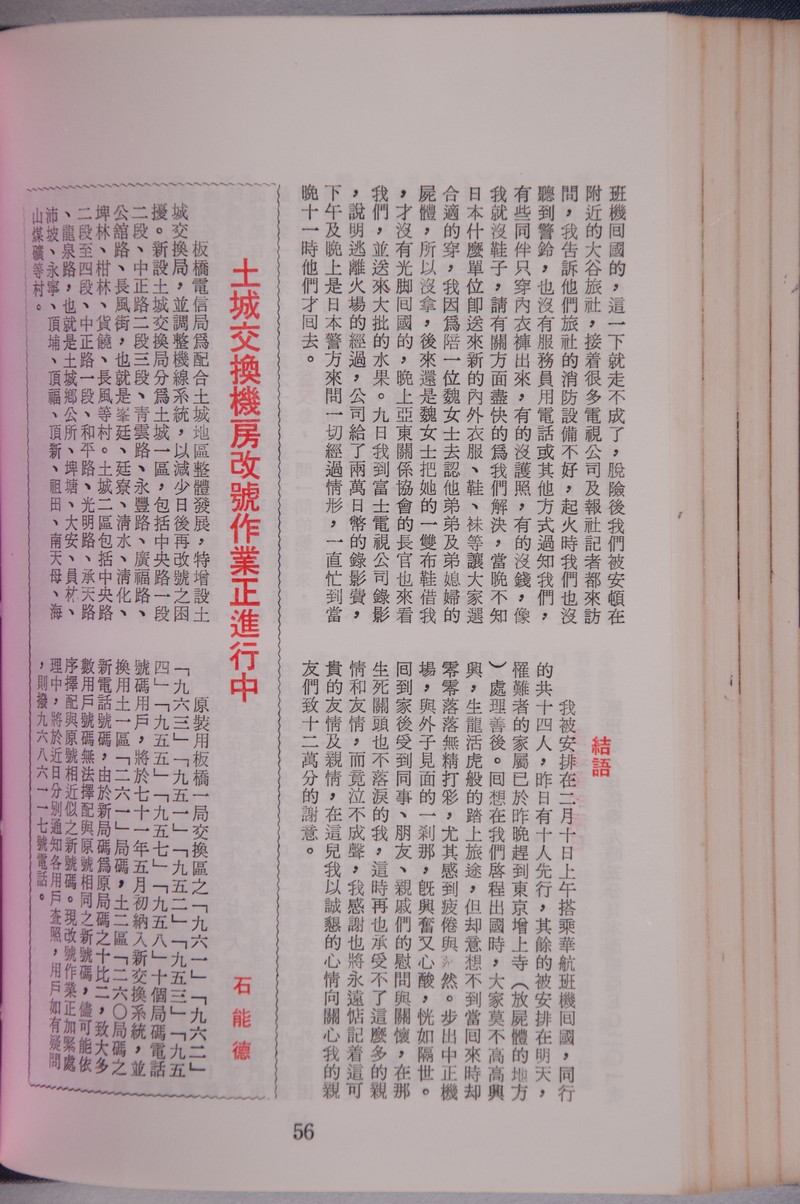 班機回國的，這一下就走不成了，脫險後我們被安頓在
附近的大谷旅社，接着很多電視公司及報社記者都來訪
問，我告訴他們旅社的消防設備不好，起火時我們也沒
聽到警鈴，也沒有服務員用電話或其他方式過知我們，
有些同伴只穿內衣褲出來，有的沒護照，有的沒錢，像
我就沒鞋子，請有關方面盡快的為我們解決，當晚不知
日本什麼單位卽送來新的內外衣服、鞋、袜等讓大家選
合適的穿，我因爲陪一位魏女士去認他弟弟及弟媳婦的
屍體，所以沒拿，後來還是魏女士把她的一雙布鞋借我
，才沒有光脚回國的，晚上亞東關係協會的長官也來看
我們，並送來大批的水果。九日我到富士電視公司錄影
，說明逃離火場的經過，公司給了兩萬日幣的錄影費，
下午及晚上是日本警方來問一切經過情形，一直忙到當
晚十一時他們才回去。
結語
我被安排在二月十日上午搭乘華航班機回國，同行
的共十四人，昨日有十人先行，其餘的被安排在明天，
罹難者的家屬已於昨晚趕到東京增上寺（放屍體的地方
）處理善後。回想在我們啓程出國時，大家莫不高高興
興，生龍活虎般的踏上旅途，但却意想不到當回來時却
零零落落無精打彩，尤其感到疲倦與 然。步出中正機
場，與外子見面的一剎那，旣興奮又心酸，恍如隔世。
回到家後受到同事、朋友、親戚們的慰問與關懷，在那
生死關頭也不落淚的我，這時再也承受不了這麼多的親
情和友情，而竟泣不成聲，我感謝也將永遠惦記着這可
貴的友情及親情，在這兒我以誠懇的心情向關心我的親
友們致十二萬分的謝意。
土城交換機房改號作業正進行中
石能德
板橋電信局爲配合土城地區整體發展，特增設土
城交換局，並調整機線系統，以減少日後再改號之困
擾。新設土城交換局分爲土城一區，包括中央路一段
二段、中正路二段三段、靑雲路、永豐路、廣福路、
公館路、長風街，也就是峯廷、廷寮、淸水、淸化、
埤林、柑林、貨饒、長風等村。土城二區包括中央路
二段至四段、中正路一段、和平路、光明路、承天路
、龍泉路，也就是土城鄉公所、埤塘、大安、員林、
沛坡、永寧、頂埔、頂福、頂新、祖田、南天母、海
山煤礦等村。
原裝用板橋一局交換區之「九六一」「九六二」
「九六三」「九五一」「九五二」「九五三」「九五
四」「九五五」「九五七」「九五八」十個局碼電話
號碼用戶，將於七十一年五月初納入新交換系統，並
換用土一區「二六一」局碼，土二區「二六〇局碼之
新電話號碼，由於新局碼爲原局碼之十比二，致大多
數用戶號碼無法擇配與原號相同之新號碼，儘可能依
序擇配與原號相近似之新號碼。現改號作業正加緊處
理中，將於近日分別通知各用戶查照，用戶如有疑問
，則撥九六八六一一七號電話。
56